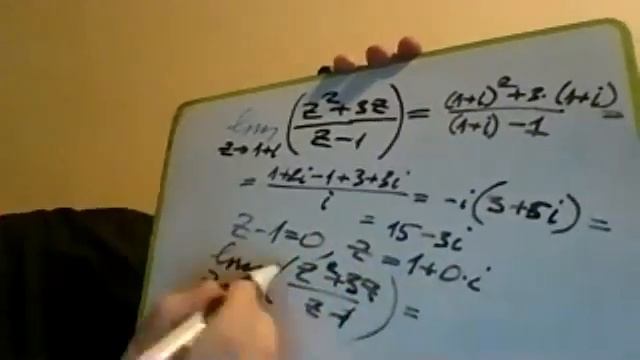 lim z→1+i (z²+3z / z-1) = (1+i)²+3·(1+i) / (1+i)-1 =
= 1+2i-1+3+3i / i = -i(3+5i) =
= 15-3i
z-1=0, z=1+0·i
lim (z²+3z / z-1) =